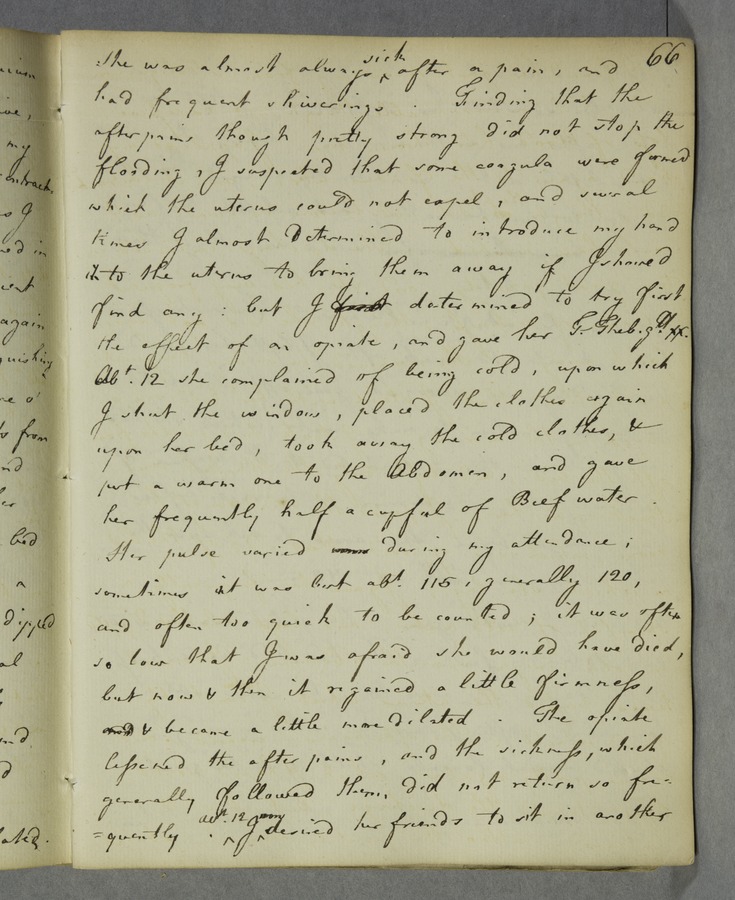 66
she was almost always sick after a pain, and
had frequent shiverings. Finding that the
afterpains though pretty strong did not stop the
flooding, I suspected that some coagula were formed
which the uterus could not expel, and several
times I almost determined to introduce my hand
into the uterus to bring them away if I should
find any: but I first determined to try first
the effect of an opiate, and gave her T. Theb. gtt xx.
Abt. 12 she complained of being cold, upon which
I shut the window, placed the clothes again
upon her bed, took away the cold clothes, &
put a warm one to the Abdomen, and gave
her frequently half a cupful of Beef water.
Her pulse varied during my attendance;
sometimes it was but abt. 115, generally 120,
and often too quick to be counted; it was often
so low that I was afraid she would have died,
but now & then it regained a little firmness,
and & became a little more dilated. The opiate
lessened the after pains, and the sickness, which
generally followed them, did not return so fre=
=quently. abt. 12 desired her friends to sit in another
my
ontract
ed in
again
quishing
from
bed
dipped